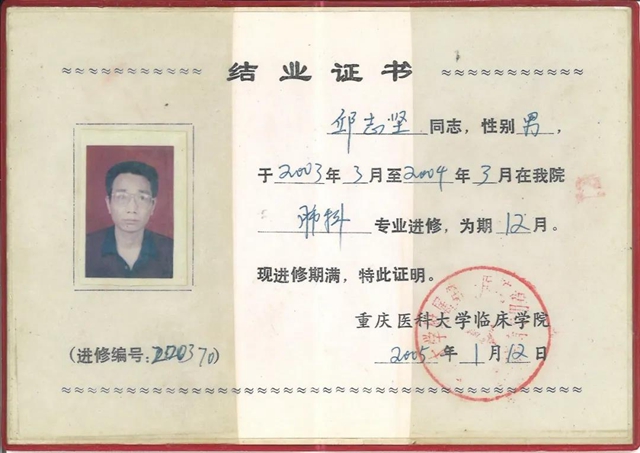 结业证书
邱志坚同志，性别男，
于2003年3月至2004年3月在我院
肺科专业进修，为期12月。
现进修期满，特此证明。
重庆医科大学临床学院
2005年1月12日
(进修编号:220370)